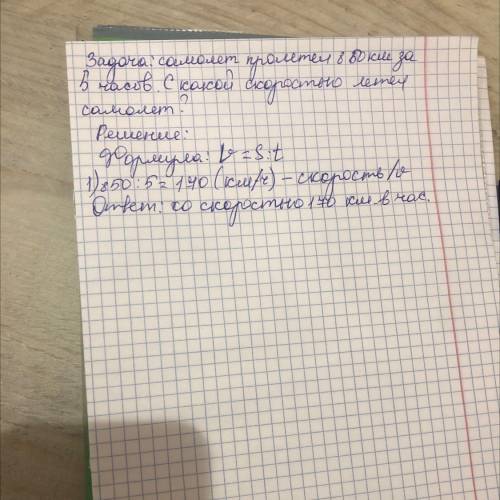 Задача: самолет пролетел 850 км за
5 часов. С какой скоростью летел
самолет?
Решение:
Формула: V = S:t
1) 850 : 5 = 170 (км/ч) – скорость/v
Ответ: со скоростью 170 км. в час.